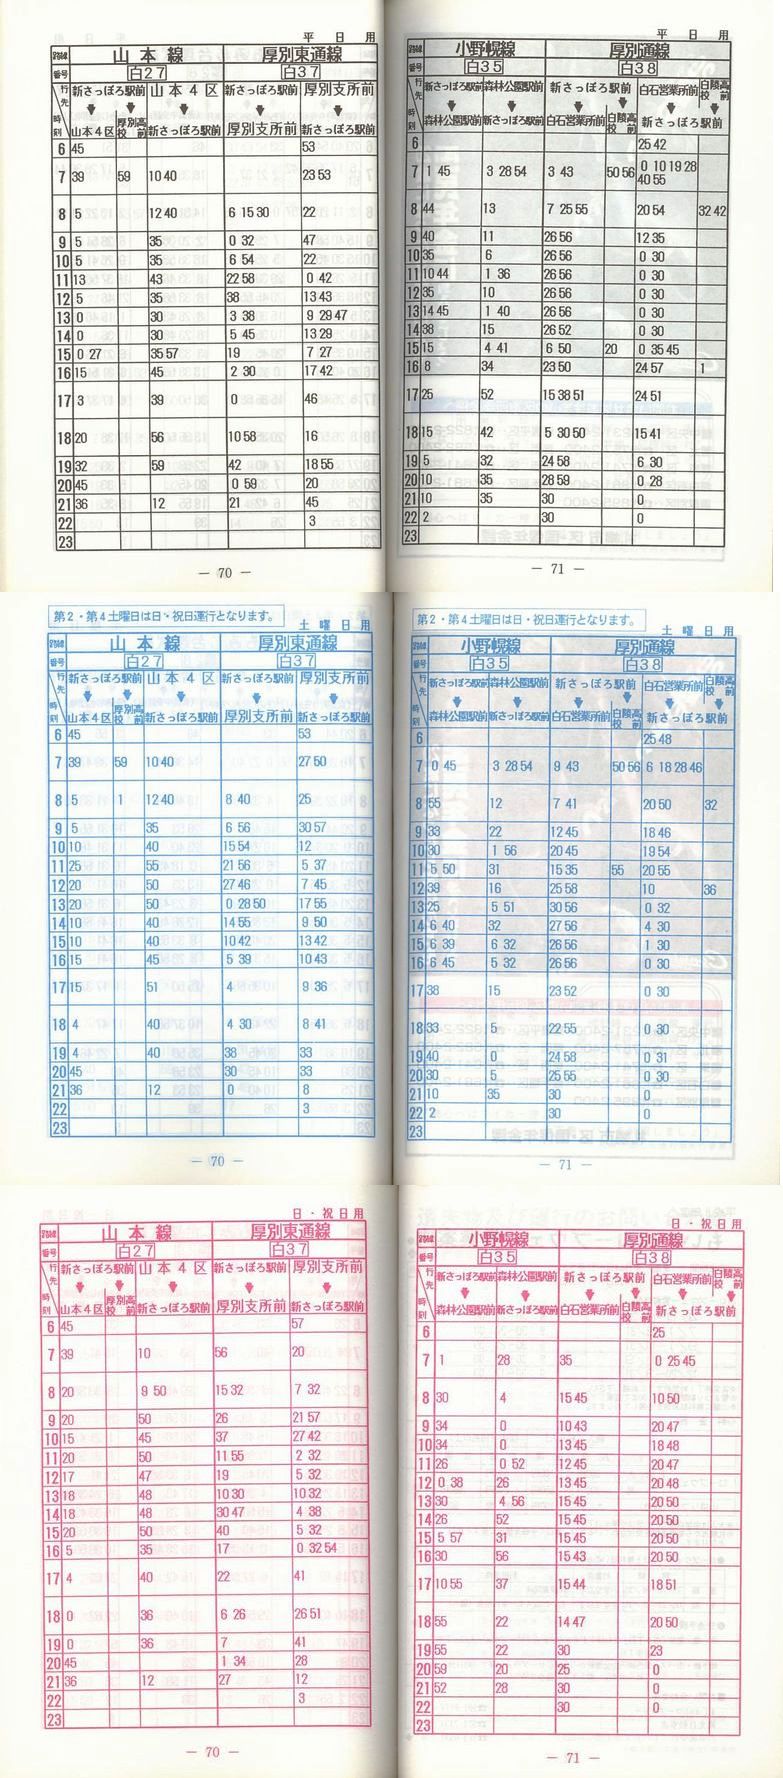 平 日 用
路線 山本線 厚別東通線
番号 白27 白37
行先 新さっぽろ駅前 山本4区 新さっぽろ駅前 厚別支所前
時刻 山本4区 厚別高校前 新さっぽろ駅前 厚別支所前 新さっぽろ駅前
6 45 53
7 39 59 10 40 23 53
8 5 12 40 6 15 30 22
9 5 35 0 32 47
10 5 35 6 54 22
11 13 43 22 58 0 42
12 5 35 38 13 43
13 0 30 3 38 9 29 47
14 0 30 5 45 13 29
15 0 27 35 57 19 7 27
16 15 45 2 30 17 42
17 3 39 0 46
18 20 56 10 58 16
19 32 59 42 18 55
20 45 0 59 20
21 36 12 21 45
22 3
23
― 70 ―
平 日 用
路線 小野幌線 厚別通線
番号 白35 白38
行先 新さっぽろ駅前 森林公園駅前 新さっぽろ駅前 白石営業所前 白陵高校前
時刻 森林公園駅前 新さっぽろ駅前 白石営業所前 白陵高校前 新さっぽろ駅前
6 25 42
7 1 45 3 28 54 3 43 50 56 0 10 19 28
40 55
8 44 13 7 25 55 20 54 32 42
9 40 11 26 56 12 35
10 35 6 26 56 0 30
11 10 44 1 36 26 56 0 30
12 35 10 26 56 0 30
13 14 45 1 40 26 56 0 30
14 38 15 26 52 0 30
15 15 4 41 6 50 20 0 35 45
16 8 34 23 50 24 57 1
17 25 52 15 38 51 24 51
18 15 42 5 30 50 15 41
19 5 32 24 58 6 30
20 10 35 28 59 0 28
21 10 35 30 0
22 2 30 0
23
― 71 ―
第2・第4土曜日は日・祝日運行となります。
土 曜 日 用
路線 山本線 厚別東通線
番号 白27 白37
行先 新さっぽろ駅前 山本4区 新さっぽろ駅前 厚別支所前
時刻 山本4区 厚別高校前 新さっぽろ駅前 厚別支所前 新さっぽろ駅前
6 45 53
7 39 59 10 40 27 50
8 5 1 12 40 8 40 25
9 5 35 6 56 30 57
10 10 40 15 54 12
11 25 55 21 56 5 37
12 20 50 27 46 7 45
13 20 50 0 28 50 17 55
14 10 40 14 55 9 50
15 10 40 10 42 13 42
16 15 45 5 39 10 43
17 15 51 4 9 36
18 4 40 4 30 8 41
19 4 40 38 33
20 45 30 33
21 36 12 0 8
22 3
23
― 70 ―
第2・第4土曜日は日・祝日運行となります。
土 曜 日 用
路線 小野幌線 厚別通線
番号 白35 白38
行先 新さっぽろ駅前 森林公園駅前 新さっぽろ駅前 白石営業所前 白陵高校前
時刻 森林公園駅前 新さっぽろ駅前 白石営業所前 白陵高校前 新さっぽろ駅前
6 25 48
7 0 45 3 28 54 9 43 50 56 6 18 28 46
8 55 12 7 41 20 50 32
9 33 22 12 45 18 46
10 30 1 56 20 45 19 54
11 5 50 31 15 35 55 20 55
12 39 16 25 58 10 36
13 25 5 51 30 56 0 32
14 6 40 32 27 56 4 30
15 6 39 6 32 26 56 1 30
16 6 45 5 32 26 56 0 30
17 38 15 23 52 0 30
18 33 5 22 55 0 30
19 40 0 24 58 0 31
20 30 5 25 55 0 30
21 10 35 30 0
22 2 30 0
23
― 71 ―
日・祝日用
路線 山本線 厚別東通線
番号 白27 白37
行先 新さっぽろ駅前 山本4区 新さっぽろ駅前 厚別支所前
時刻 山本4区 厚別高校前 新さっぽろ駅前 厚別支所前 新さっぽろ駅前
6 45 57
7 39 10 56 20
8 20 9 50 15 32 7 32
9 20 50 26 21 57
10 15 45 37 27 42
11 20 50 11 55 2 32
12 17 47 19 5 32
13 18 48 10 30 10 32
14 18 48 30 47 4 38
15 20 50 40 5 32
16 5 35 17 0 32 54
17 4 40 22 41
18 0 36 6 26 26 51
19 0 36 7 41
20 45 1 34 28
21 36 12 27 12
22 3
23
― 70 ―
日・祝日用
路線 小野幌線 厚別通線
番号 白35 白38
行先 新さっぽろ駅前 森林公園駅前 新さっぽろ駅前 白石営業所前 白陵高校前
時刻 森林公園駅前 新さっぽろ駅前 白石営業所前 白陵高校前 新さっぽろ駅前
6 25
7 1 28 35 0 25 45
8 30 4 15 45 10 50
9 34 0 10 43 20 47
10 34 0 13 45 18 48
11 26 0 52 12 45 20 47
12 0 38 26 13 45 20 48
13 30 4 56 15 45 20 50
14 26 52 15 45 20 50
15 5 57 31 15 45 20 50
16 30 56 15 43 20 50
17 10 55 37 15 44 18 51
18 55 22 14 47 20 50
19 55 22 30 23
20 59 20 25 0
21 52 28 30 0
22 30 0
23
― 71 ―